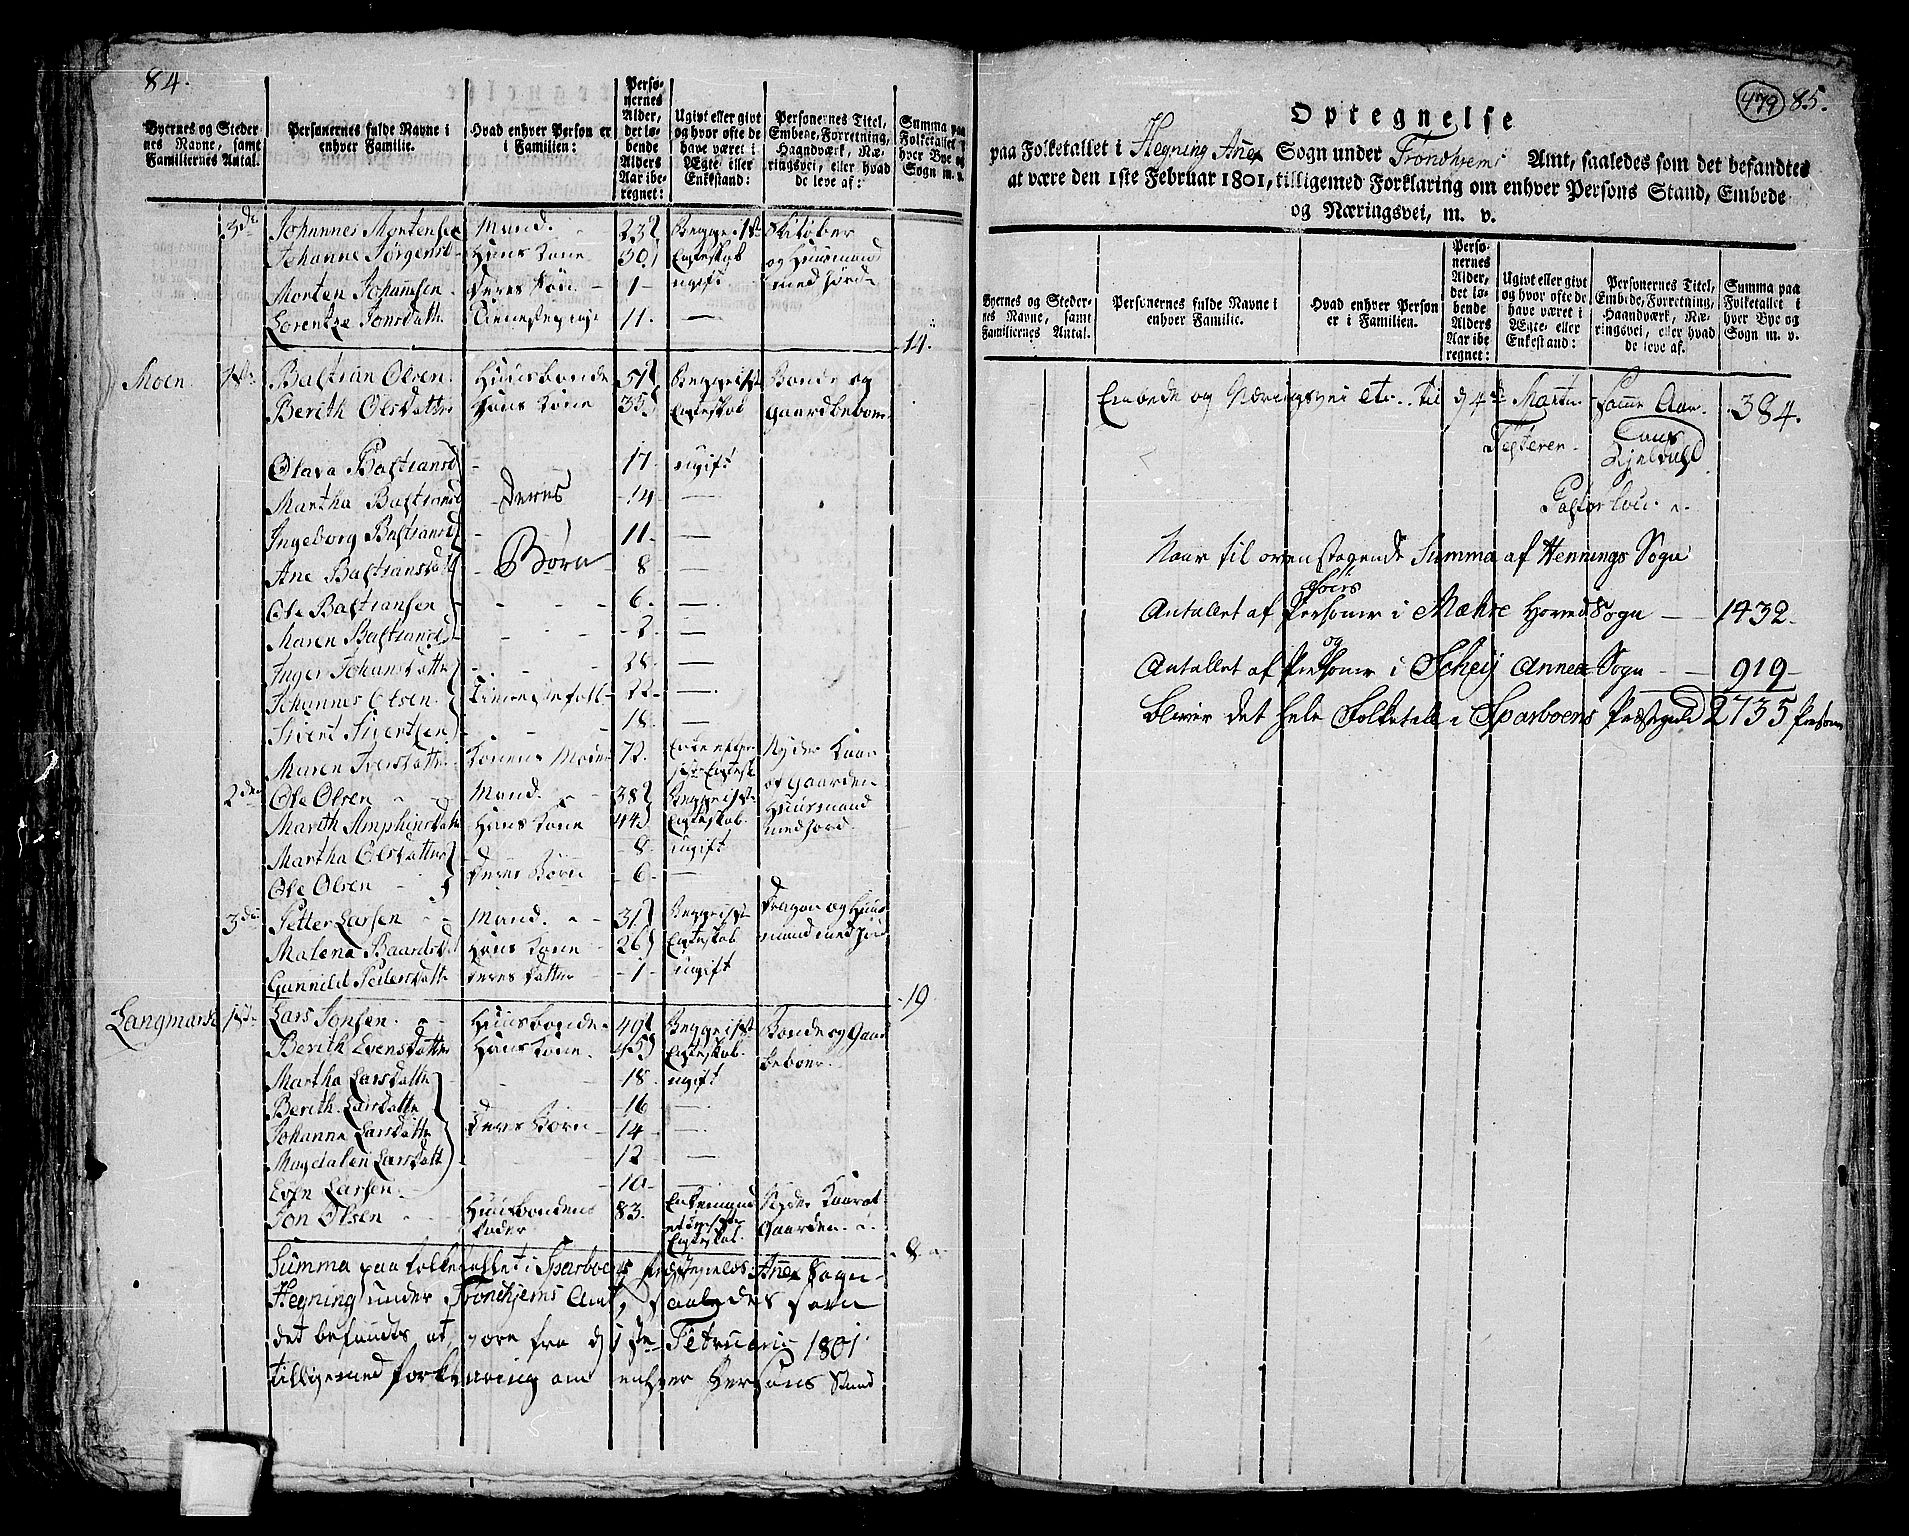 84.
Byernes og Steder
nes Navne, samt
Familiernes Antal.
Personernes fulde Navne i
enhver Familie.
Hvad enhver Person er
i Familien:
Perso-
nernes
Alder,
det lø-
bende
Alders
Aar ibe-
regnet:
Ugivt eller givt
og hvor ofte de
have været i
Ægte- eller
Enkestand:
Personernes Titel,
Embede, Forretning,
Haandværk, Næ-
ringsvei, eller hvad
de leve af:
Summa paa
Folketallet i
hver Bye og
Sogn m. v.
3de Johannes Mortensen Mand. 32 Begge i 1ste Skiløber
Johanne Jørgensd. Hans Kone 30 Egteskab og Huusmand
Morten Johansen Deres Søn 1 ugift med Jord
Lorentze Jonsdatt. Tienestepige 11. —
14.
Moen 1ste Bastian Olsen. Huusbonde 51 Begge i 1ste Bonde og
Berith Olsdatter Hans Kone 35 Egteskab Gaardbeboer
Olava Bastiansd - 17 ugift
Martha Bastiansd Deres 14 —
Ingeborg Bastiansd - 11. —
Ane Bastiansdatt Børn 8 —
Ole Bastiansen - - 6. —
Maren Bastiansd - - 2. —
Inger Johansdatter - 28. —
Johannes Olsen Tienestefolk 22 —
Sivert Sivertsen - 18. —
Maren Iversdatter Konens Moder 72. Enke efter Nyder Kaar
1ste Egtesk. af Gaarden
2den Ole Olsen Mand. 38 Begge i 1ste Huusmand
Marith Amphinsdatt Hans Kone 44 Egteskab. med Jord.
Martha Olsdatter - 8 ugift
Ole Olsen - Deres Børn 6. —
3de Petter Larsen Mand. 31 Begge i 1ste Dragon og Huus
Malena Baardsd Hans Kone 26 Egteskab mand med Jord
Gunnild Pedersdatt Deres Datter 1 ugift
19
Langmark 1ste Lars Jonsen. Huusbonde 49 Begge i 1ste Bonde og Gaard
Berith Evensdatter Hans Kone. 45 Egteskab. beboer.
Martha Larsdatte - 18. ugift
Berith Larsdatte - 16 —
Johanna Larsdatte Deres Børn 14 —
Magdalen Larsdatt - 12 —
Even Larsen. - 10. —
Jon Olsen Huusbondens 83. Enkemand Nyder Kaar af
Fader efter 1ste Gaarden.
Egteskab.
8
Summa paa folketallet i Sparboens Præstegields Anex Sogn
Hegning under Trondhjems Amt, saaledes som
det befandtes at være fra d 1ste Februarii 1801
tilligemed forklaring om enhver Persons Stand
479 85.
Optegnelse
paa Folketallet i Hegning Anex Sogn under Trondhiems Amt, saaledes som det befandtes
at være den 1ste Februar 1801, tilligemed Forklaring om enhver Persons Stand, Embede
og Næringsvei, m. v.
Byernes og Steder-
nes Navne, samt
Familiernes Antal.
Personernes fulde Navne i
enhver Familie.
Hvad enhver Person
er i Familien.
Perso-
nernes
Alder,
det lø-
bende
Alders
Aar ibe-
regnet:
Ugivt eller givt
og hvor ofte de
have været i
Ægte- eller
Enkestand:
Personernes Titel,
Embede, Forretning,
Haandværk, Næ-
ringsvei, eller hvad
de leve af.
Summa paa
Folketallet i
hver Bye og
Sogn m. v.
Embede og Næringsvei etc. til d 4de Martii samme Aar. 384.
Testerer
Pastor loci
Naar til ovenstaaende Summa af Hennings Sogn
føies
Antallet af Personer i Mæhre Hoved Sogn — 1432.
og
Antallet af Personer i Scheij Annex Sogn — 919
Bliver det hele Folketall i Sparboens Præstegield 2735 Personer